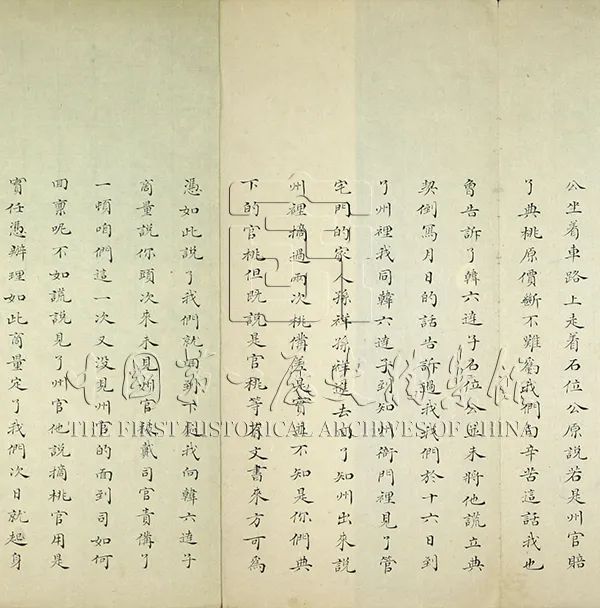 公坐着車路上走着石位公原說若是州官賠
了典桃原價斷不難為我們白辛苦這話我也
曾告訴了韓六達子石位公並未將他謊立典
契倒寫月日的話告訴過我我們於十六日到
了州裡我同韓六達子到知州衙門裡見了管
宅門的家人孫祥孫祥進去問了知州出來說
州裡摘過兩次桃俻差是實並不知是你們典
下的官桃但既說是官桃等有文書來方可為
憑如此說了我們就回到下處我向韓六達子
商量說你頭次來未見州官被戴司官責俻了
一頓咱們這一次又沒見州官的面到司如何
回禀呢不如謊說見了州官他說摘桃官用是
實任憑辦理如此商量定了我們次日就起身
中國第一歷史檔案館
THE FIRST HISTORICAL ARCHIVES OF CHINA